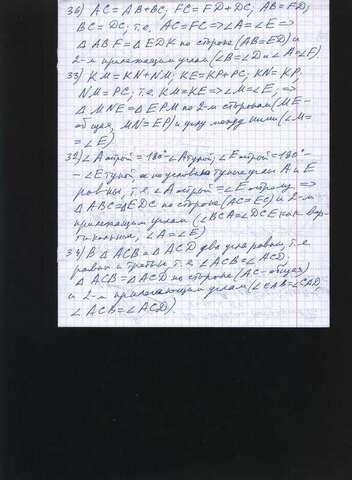 36) AC = AB+BC; FC = FD+DC; AB=FD;
BC = DC; т.е, AC=FC=>∠A=∠E=>
ΔABF=ΔEDK по стороне (AB=ED) и
2-м прилежащим углам (∠B=∠D и ∠A=∠E).
33) KM=KN+NM; KE=KP+PC; KN=KP,
NM=PC, т.е. KM=KE=>∠M=∠E, =>
ΔMNE=ΔEPM по 2-м сторонам (ME-
общая, MN=EP) и углу между ними (∠M=
=∠E)
32) ∠A острой = 180°-∠A тупой, ∠E острой=180°-
-∠E тупой по условию тупые углы A и E
равны, т.е. ∠A острой = ∠E острому, =>
ΔABC=ΔEDC по стороне (AC=EC) и 2-м
прилежащим углам (∠BCA=∠DCE как вер-
тикальные, ∠A=∠E)
34) В ΔACB и ΔACD два угла равны, т.е
равны и третьи т.е. ∠ACB=∠ACD,
ΔACB=ΔACD по стороне (AC-общая)
и 2-м прилежащим углам (∠CAB=∠CAD,
∠ACB=∠ACD).